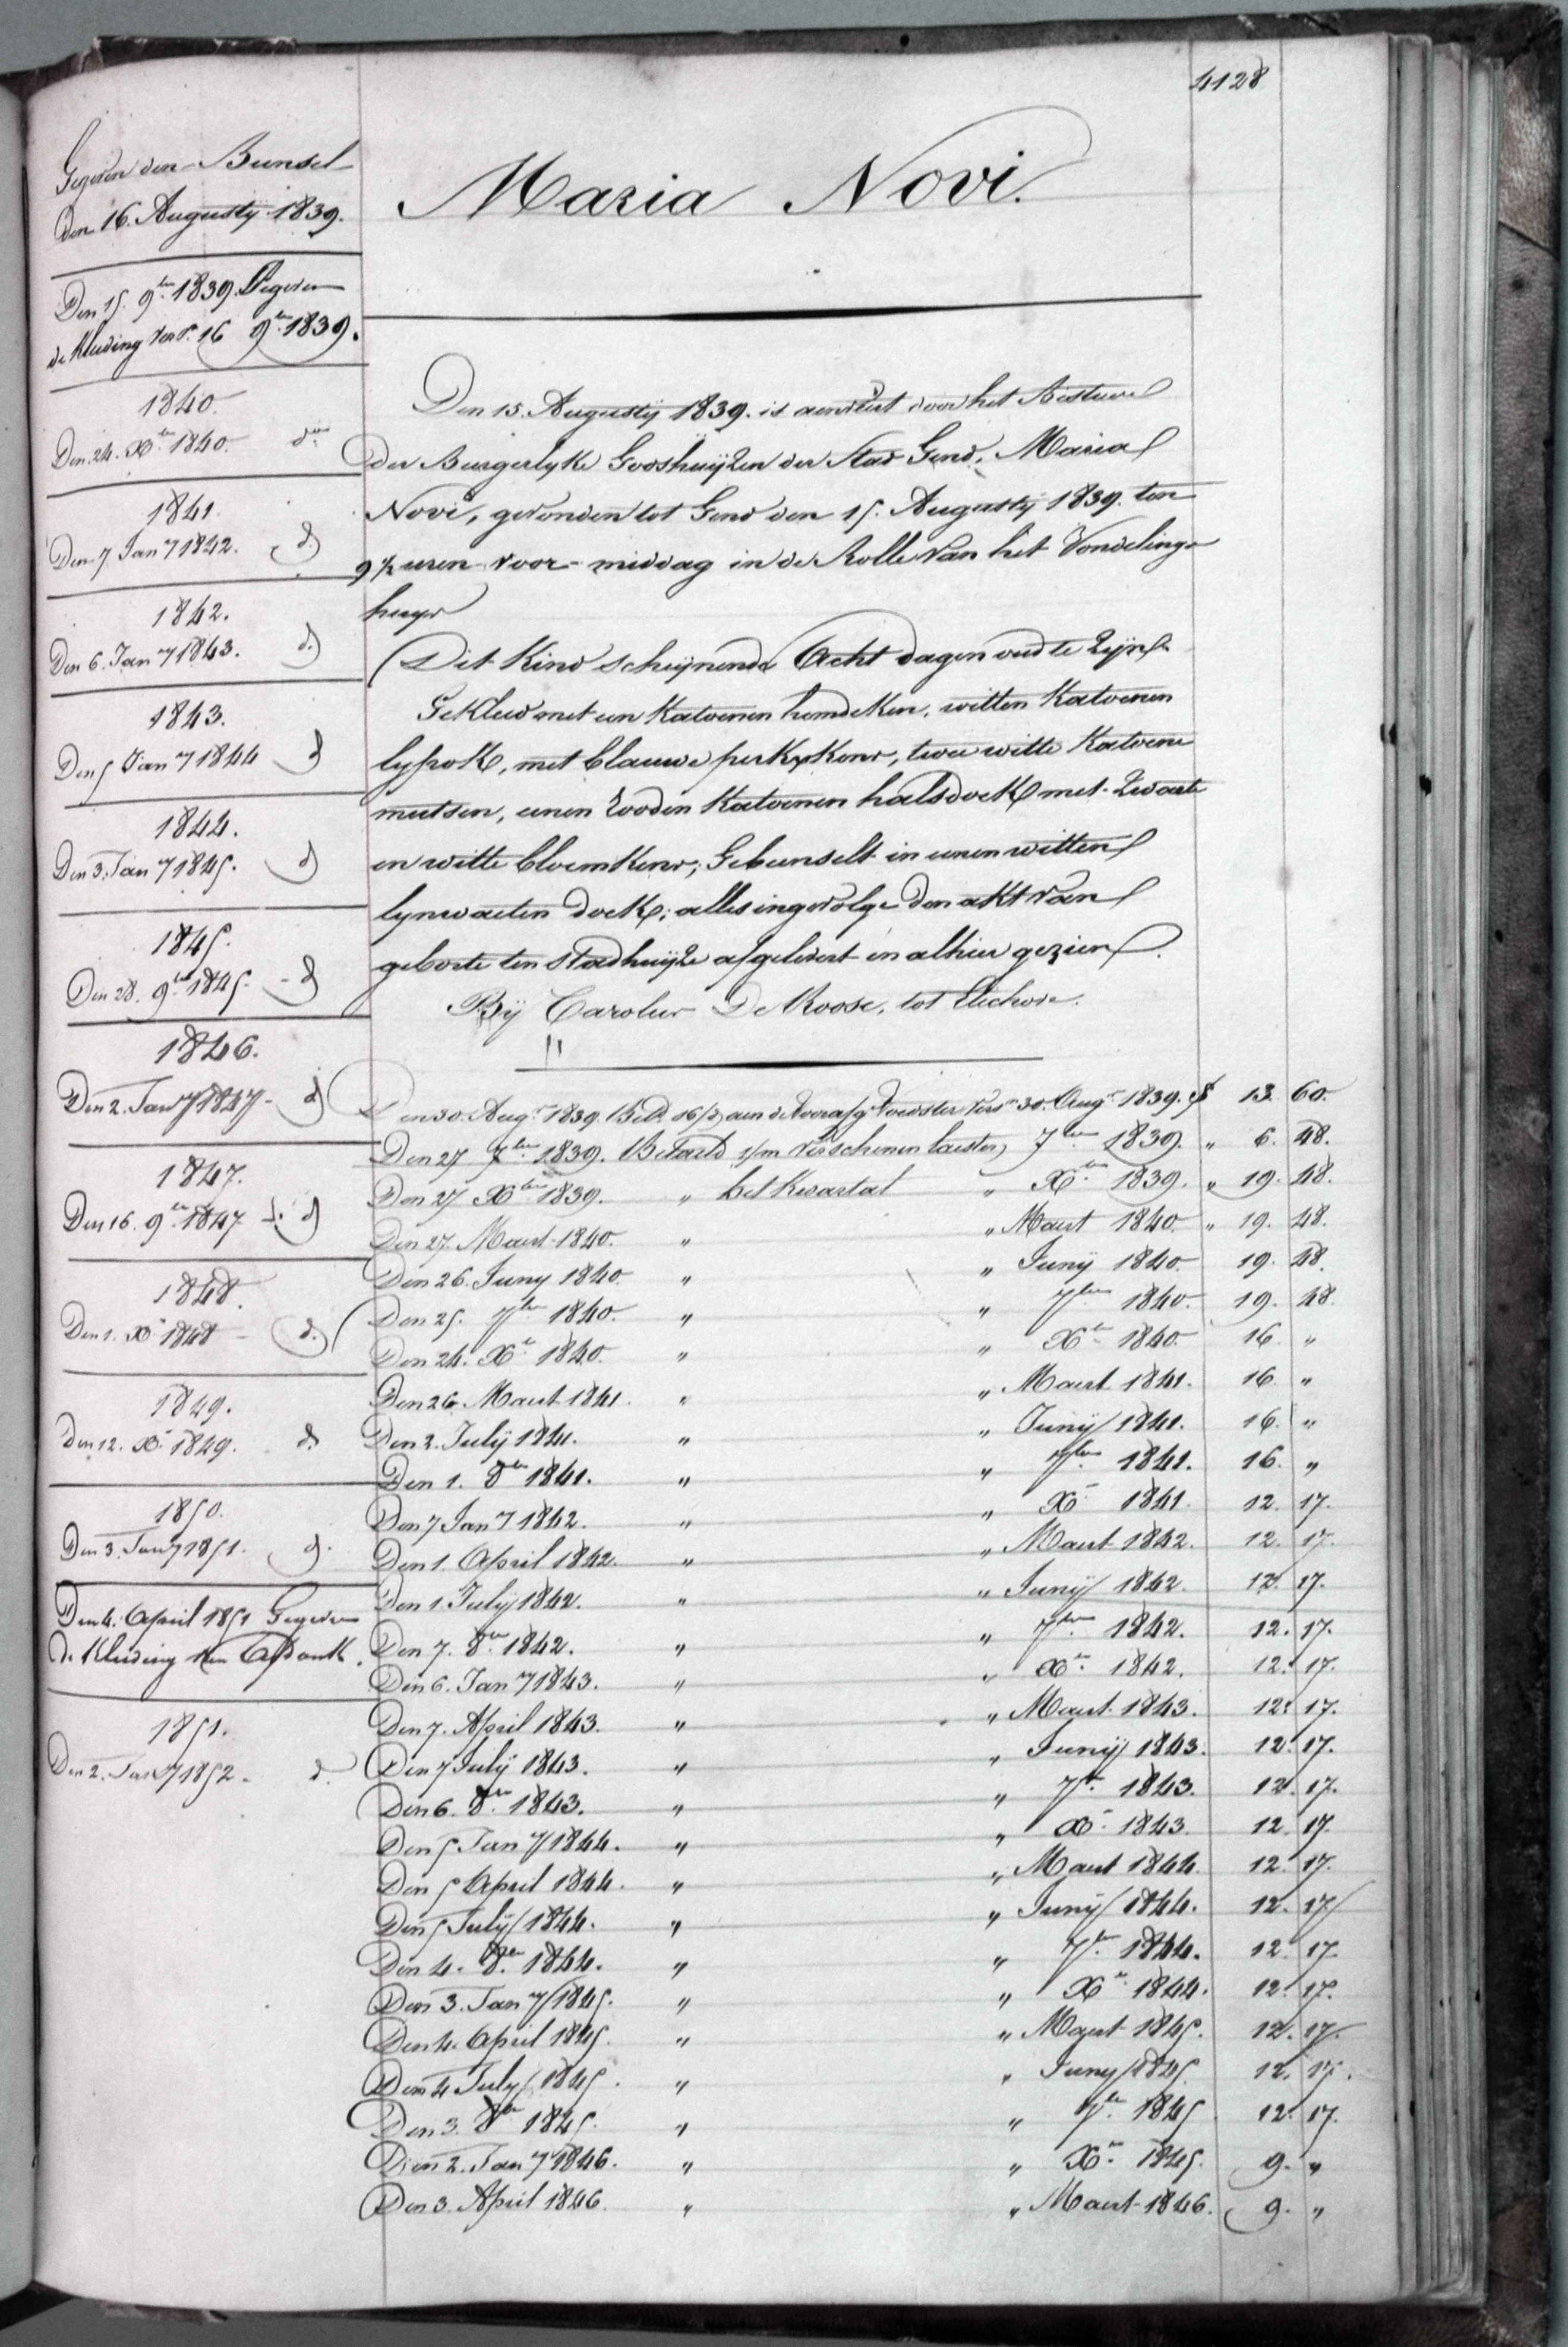 4128
Gegeven den Bunsel
den 16. Augusty 1839.
Den 15. 9ber 1839. Gegeven
de Kleeding 16 9ber 1839.
1840.
Den 24. Xber 1840. do
1841.
Den 7 Jany 1842. d.
1842.
Den 6. Jany 1843. d.
1843.
Den 5 Jany 1844 d
1844.
Den 3. Jany 1845. d
1845.
Den 28. 9ber 1845. - d
1846.
Den 2. Jany 1847 - d
1847.
Den 16. 9ber 1847 - d
1848.
Den 1. Xr 1848 - d.
1849.
den 12. Xr 1849. d.
1850.
Den 3. Jany 1851. d.
Den 4. April 1851 Gegeven
de Kleeding van Afdank.
1851.
Den 2. Jany 1852. d.
Maria Novi.
Den 15. Augustÿ 1839. is aenveert door het Bestuer
der Burgerlyke Godshuÿzen der Stad Gend, Maria
Novi, gevonden tot Gend den 15. Augustÿ 1839. ten
9 1/2 uren voor-middag in de Rolle van het Vondelings
huys
(Dit Kind scheÿnende Acht dagen oud te Zÿn)
Gekleed met een Katoenen hemdeken, witten Katoenen
lyfrok, met blauwe perkskens, twee witte Katoene
mutsen, eenen Rooden Katoenen halsdoek met Zwarte
en witte bloemkens; Gebunselt in eenen witten
lynwaeten doek; alles ingevolge den akt van
geborte ten Stadhuÿze afgelevert en alhier gezien.
Bÿ Carolus De Roose, tot Eechove.
Den 30. Augt 1839. Betd 16/d aen de voorafg Voedster vers 30. Augt 1839. f 13 60.
Den 27 7ber 1839. Betaeld 1/m verschenen laesten 7ber 1839. " 6. 48.
Den 27 Xber 1839. " het Kwartal " Xber 1839. " 19. 48.
Den 27. Maert 1840. " " Maert 1840. " 19. 48.
Den 26. Juny 1840. " " Junÿ 1840. 19. 48.
Den 25. 7ber 1840. " " 7ber 1840. 19. 48.
Den 24. Xber 1840. " " Xber 1840. 16. "
Den 26. Maert 1841. " " Maert 1841. 16. "
Den 2. Julÿ 1841. " " Junÿ 1841. 16. "
Den 1. 8ber 1841. " " 7ber 1841. 16. "
Den 7 Jany 1842. " " Xr 1841. 12. 17.
Den 1. April 1842. " " Maert 1842. 12. 17.
Den 1. July 1842. " " Junÿ 1842. 12. 17.
Den 7. 8ber 1842. " " 7ber 1842. 12. 17.
Den 6. Jany 1843. " " Xber 1842. 12. 17.
Den 7. April 1843. " " Maert 1843. 12. 17.
Den 7 Julÿ 1843. " " Junÿ 1843. 12. 17.
Den 6. 8ber 1843. " " 7br 1843. 12. 17.
Den 5 Jany 1844. " " Xr 1843. 12 17.
Den 5 April 1844. " " Maert 1844. 12. 17.
Den 5 Julÿ 1844. " " Junÿ 1844. 12. 17
Den 4. 8ber 1844. " " 7br 1844. 12. 17
Den 3. Jany 1845. " " Xr 1844. 12. 17.
Den 4. April 1845. " " Maert 1845. 12. 17.
Den 4 July 1845. " " Juny 1845. 12. 17.
Den 3. 8ber 1845. " " 7ber 1845 12. 17.
Den 2. Jany 1846. " " Xr 1845. 9. "
Den 3. April 1846. " " Maert 1846. 9. "